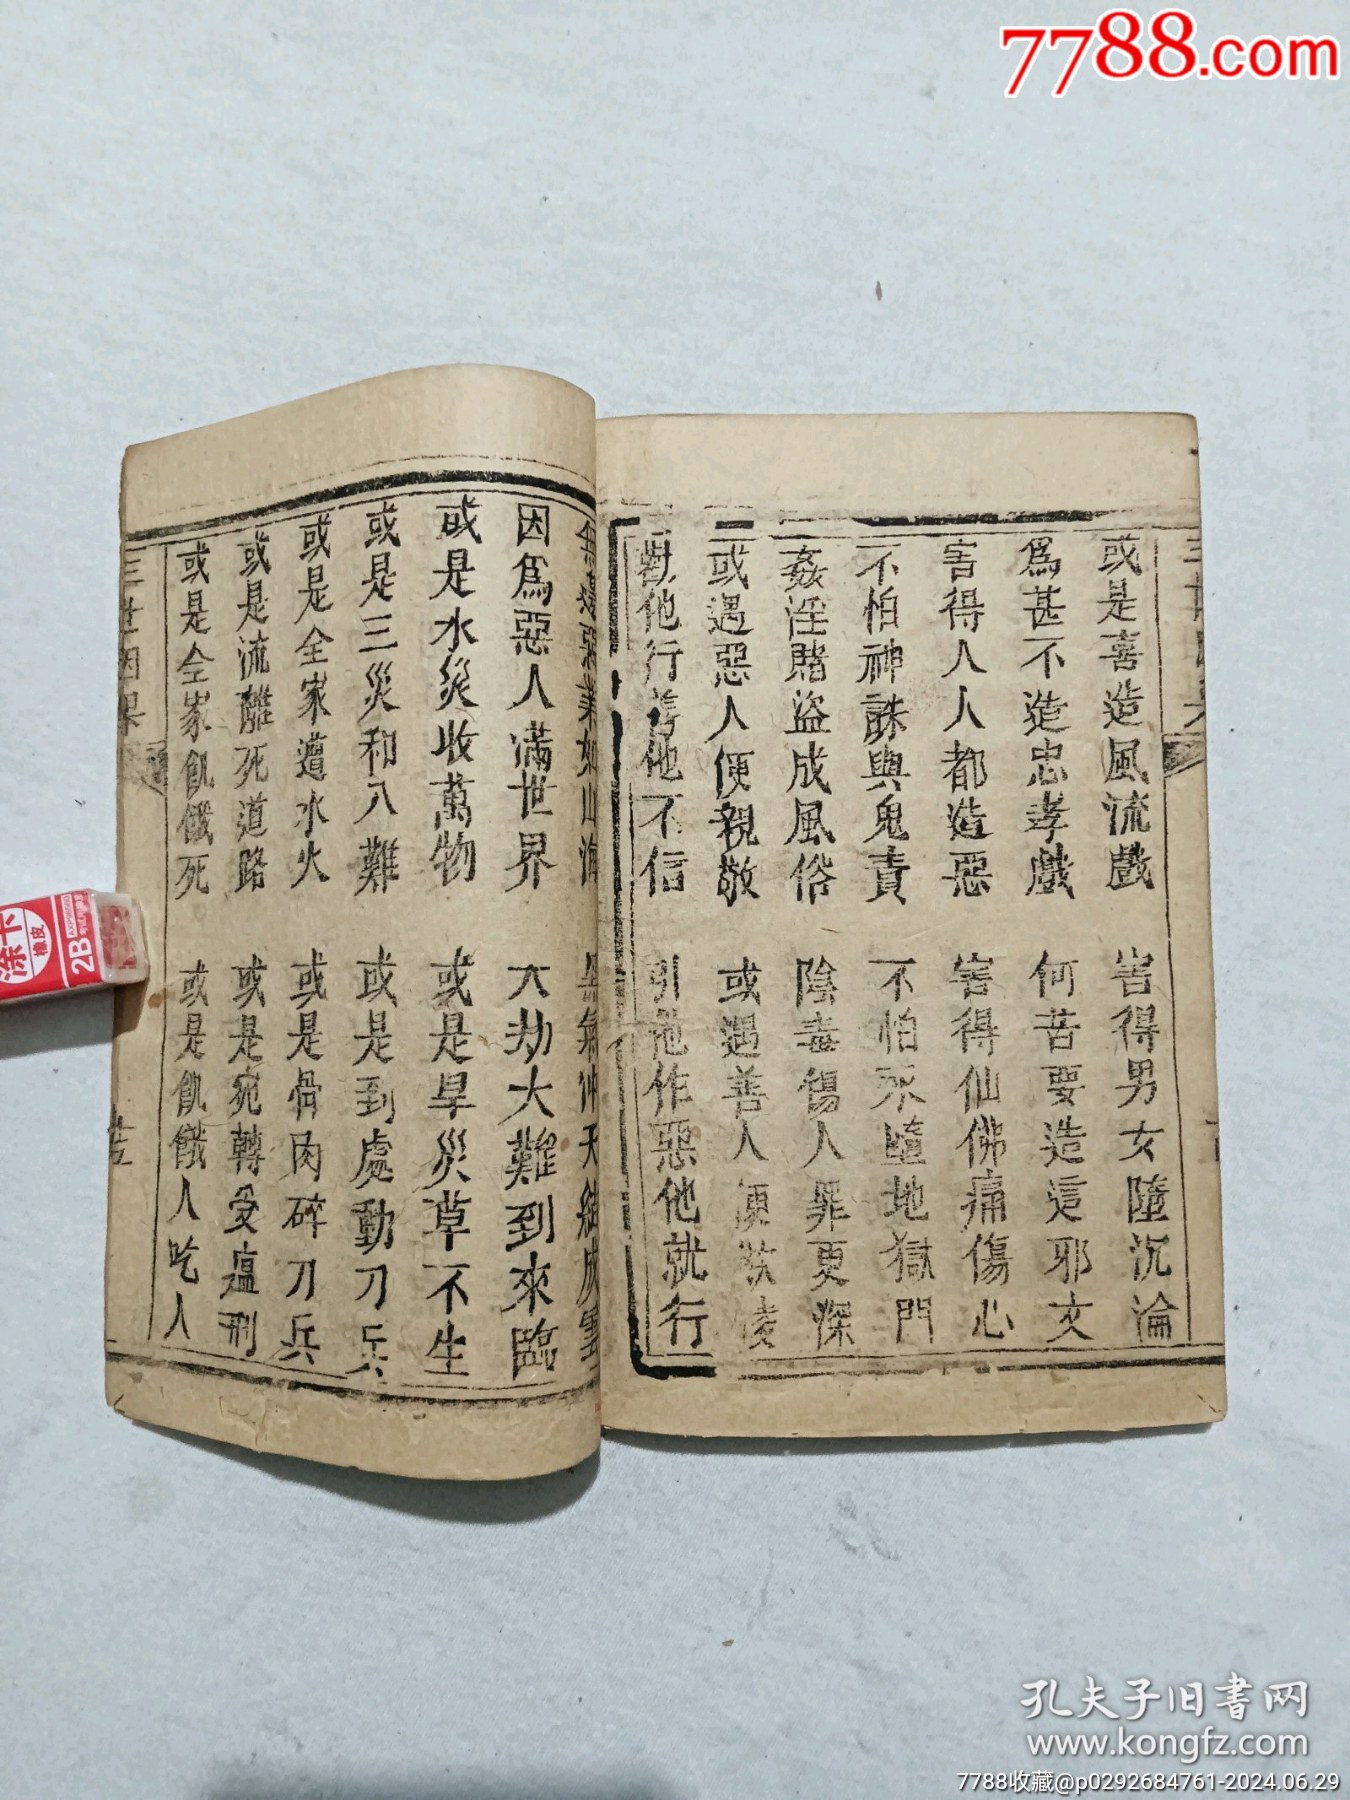 7788.com
三世因果
或是喜造風流戲 害得男女墮沉淪
為甚不造忠孝戲 何苦要造這邪文
害得人人都造惡 害得仙佛痛傷心
不怕神誅與鬼責 不怕永墮地獄門
姦淫賭盜成風俗 陰毒傷人罪更深
或遇惡人便親敬 或遇善人便欺凌
勸他行善他不信 引他作惡他就行
無邊惡業如山海 黑氣沖天結成雲
因為惡人滿世界 大劫大難到來臨
或是水災收萬物 或是旱災草不生
或是三災和八難 或是到處動刀兵
或是全家遭水火 或是骨肉碎刀兵
或是流離死道路 或是宛轉受瘟刑
或是全家飢餓死 或是飢餓人吃人
三世因果
涂卡
橡皮
2B
孔夫子旧書网
www.kongfz.com
7788收藏@p0292684761-2024.06.29